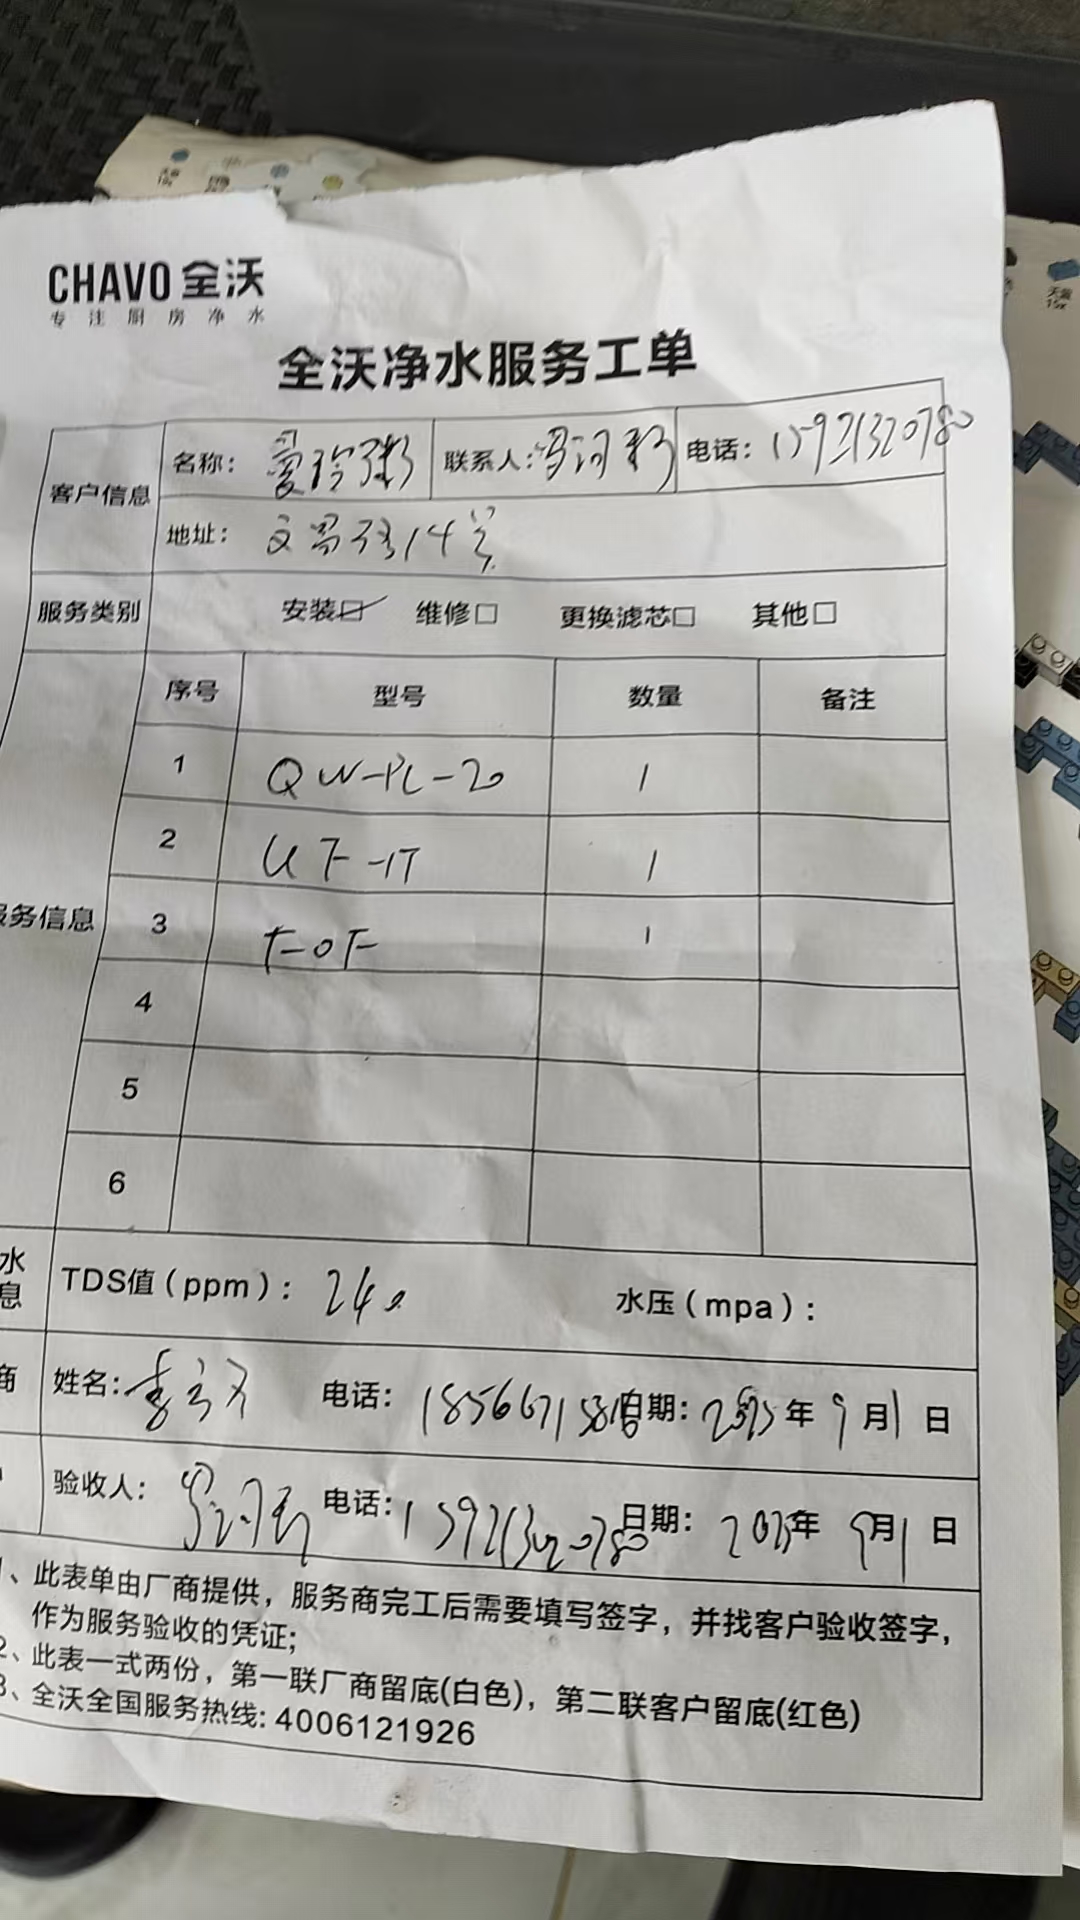 CHAVO 全沃
专注厨房净水
全沃净水服务工单
客户信息 名称： 联系人： 电话：15921320780
地址：文昌路14号
服务类别 安装☑ 维修□ 更换滤芯□ 其他□
序号 型号 数量 备注
1 QW-PL-20 1
2 UF-1T 1
服务信息 3 F-OF 1
4
5
6
水
息
TDS值（ppm）：240 水压（mpa）：
商 姓名： 电话： 日期： 年 9月1日
验收人： 电话：15921320780 日期： 年 9月1日
1、此表单由厂商提供，服务商完工后需要填写签字，并找客户验收签字，
作为服务验收的凭证；
2、此表一式两份，第一联厂商留底(白色)，第二联客户留底(红色)
3、全沃全国服务热线: 4006121926